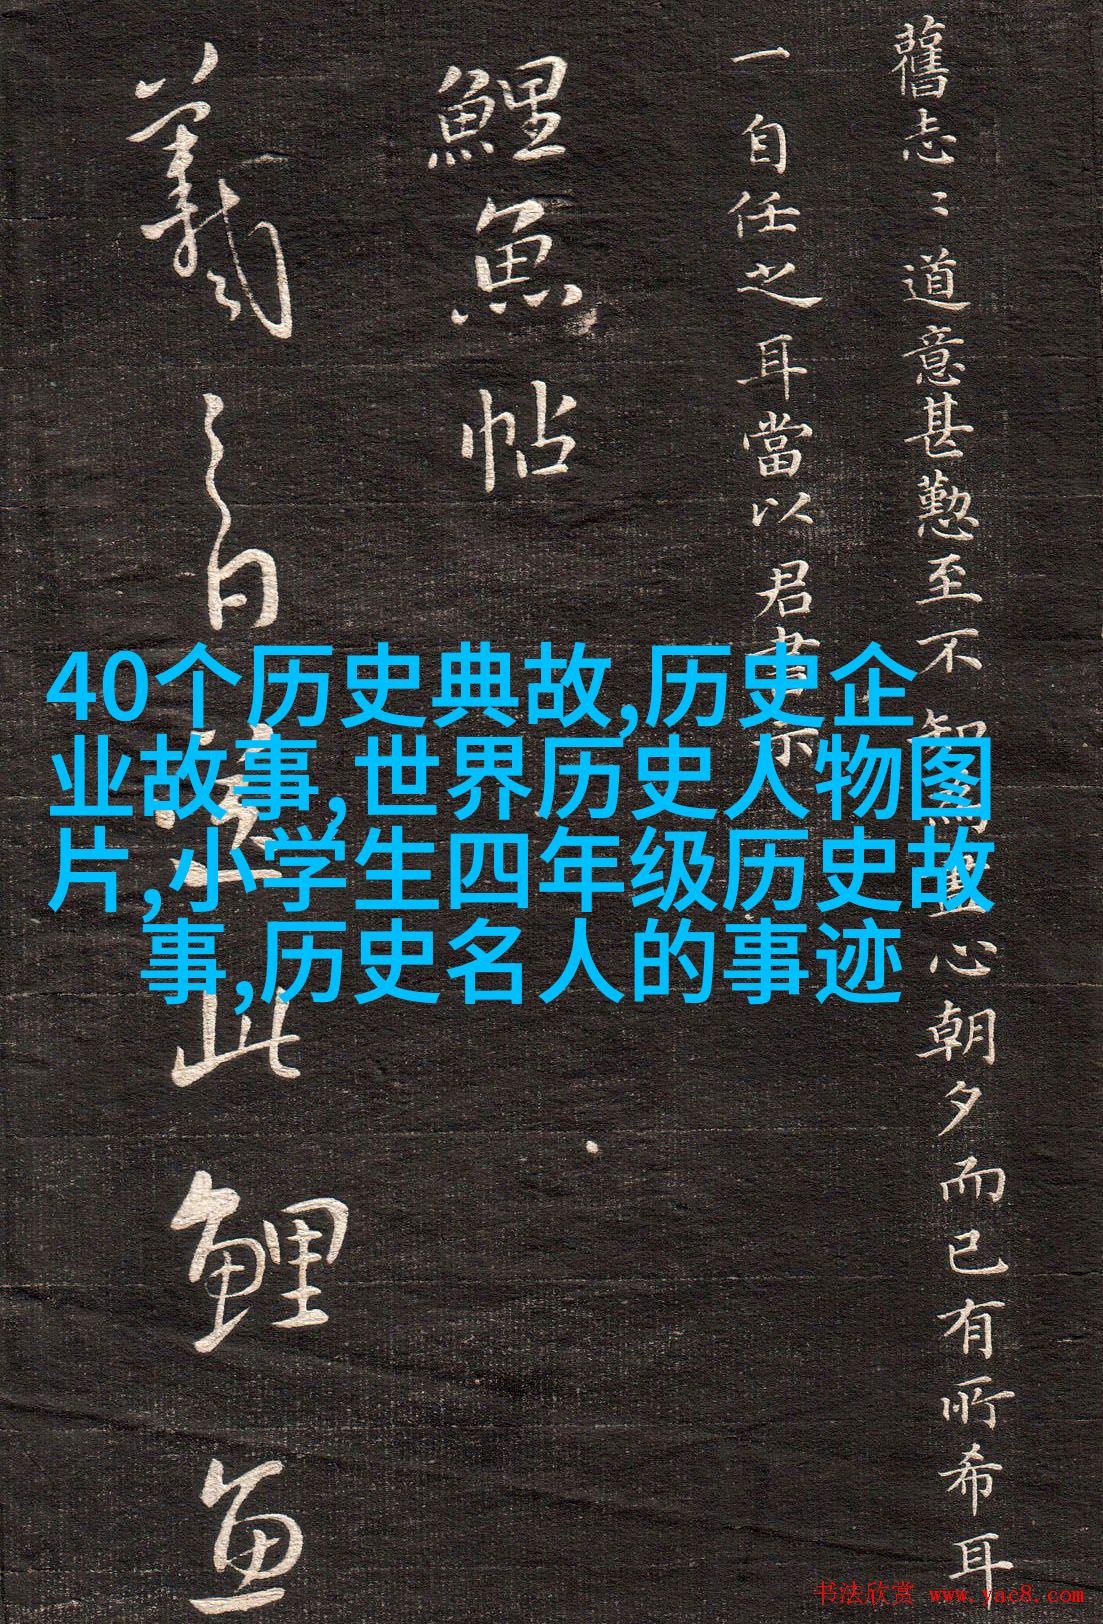 舊志〻道意甚懃至不心朝夕而已有所希耳
一自任之耳當以君書示
鯉魚帖
羲之白送此鯉魚
40个历史典故,历史企
业故事,世界历史人物图
片,小学生四年级历史故
事,历史名人的事迹
书法欣赏 www.yac8.com